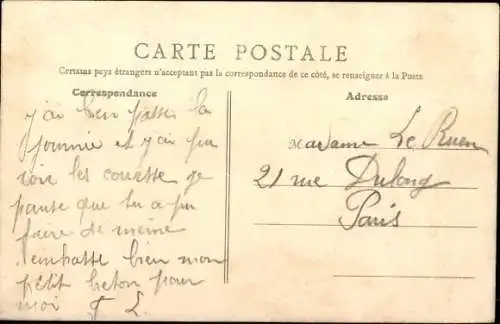 CARTE POSTALE
Certains pays étrangers n'acceptant pas la correspondance de ce côté, se renseigner à la Poste
Correspondance
Adresse
j'ai bien passé la
journie et j'ai pu
voir les couesse ge
panse que tu a pu
faire de meme
embasse bien mon
petit beton pour
moi F L
Madame Le Ruen
21 rue Dulong
Paris